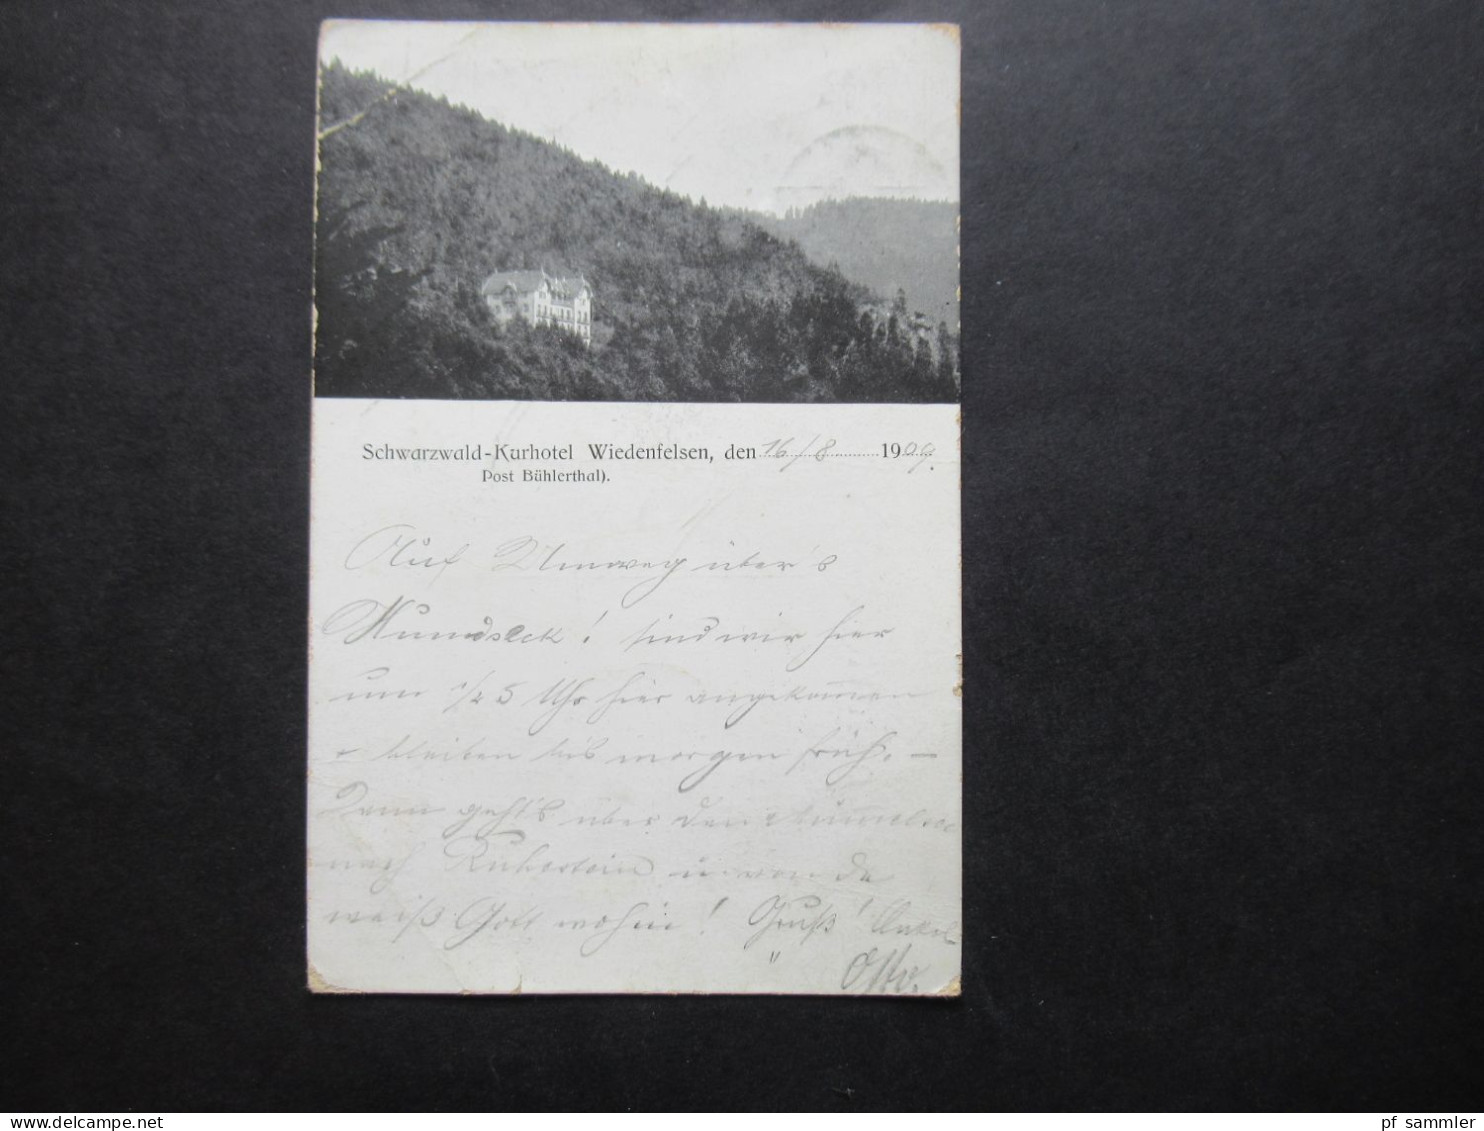 Schwarzwald-Kurhotel Wiedenfelsen, den 16/8 1909.
Post Bühlerthal).
Auf Umweg über's
Hundseck! sind wir hier
um 1/2 5 Uhr hier angekommen
+ bleiben bis morgen früh. –
Dann geht's über den Mummelsee
nach Ruhestein u. von da
weiß Gott wohin! Gruß! Onkel
Otto.
www.delcampe.net
pf sammler